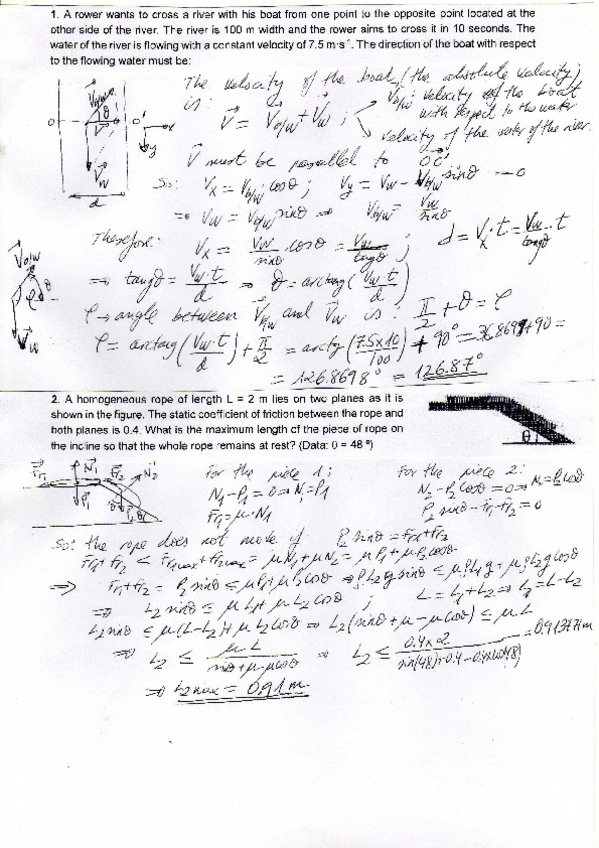 1. A rower wants to cross a river with his boat from one point to the opposite point located at the
other side of the river. The river is 100 m width and the rower aims to cross it in 10 seconds. The
water of the river is flowing with a constant velocity of 7.5 m·s⁻¹. The direction of the boat with respect
to the flowing water must be:
The velocity of the boat (the absolute velocity)
is: V = Vb/w + Vw ; Vb/w: velocity of the boat
with respect to the water
velocity of the water of the river.
V must be parallel to OO'
So: Vx = Vb/w cosθ ; Vy = Vw - Vb/w sinθ = 0
⇒ Vw = Vb/w sinθ ⇒ Vb/w = Vw/sinθ
Therefore: Vx = Vw/sinθ cosθ = Vw/tangθ ; d = Vx·t = Vw/tangθ · t
⇒ tangθ = Vw·t/d ⇒ θ = arctang(Vw·t/d)
φ → angle between Vb/w and Vw is: π/2 + θ = φ
φ = arctang(Vw·t/d) + π/2 = arctg(7.5x10/100) + 90° = 36.8699+90 =
= 126.8698° = 126.87°
2. A homogeneous rope of length L = 2 m lies on two planes as it is
shown in the figure. The static coefficient of friction between the rope and
both planes is 0.4. What is the maximum length of the piece of rope on
the incline so that the whole rope remains at rest? (Data: θ = 48 º)
θ
For the piece 1: For the piece 2:
N1-P1 = 0 ⇒ N1=P1 N2-P2cosθ = 0 ⇒ N2=P2cosθ
Fr1=μ·N1 P2sinθ-Fr1-Fr2=0
So: the rope does not move if P2 sinθ = Fr1+Fr2
Fr1+Fr2 ≤ Fr1max+Fr2max = μN1+μN2 = μP1+μP2cosθ
⇒ Fr1+Fr2 = P2sinθ ≤ μP1+μP2cosθ ⇒ ρL2g sinθ ≤ μρL1g+μρL2g cosθ
⇒ L2 sinθ ≤ μL1+μL2cosθ ; L=L1+L2 ⇒ L1=L-L2
L2 sinθ ≤ μ(L-L2)+μL2cosθ ⇒ L2(sinθ+μ-μcosθ) ≤ μL
⇒ L2 ≤ μL/(sinθ+μ-μcosθ) ⇒ L2 ≤ 0.4x2/(sin(48)+0.4-0.4xcos48)
⇒ L2max = 0.91m